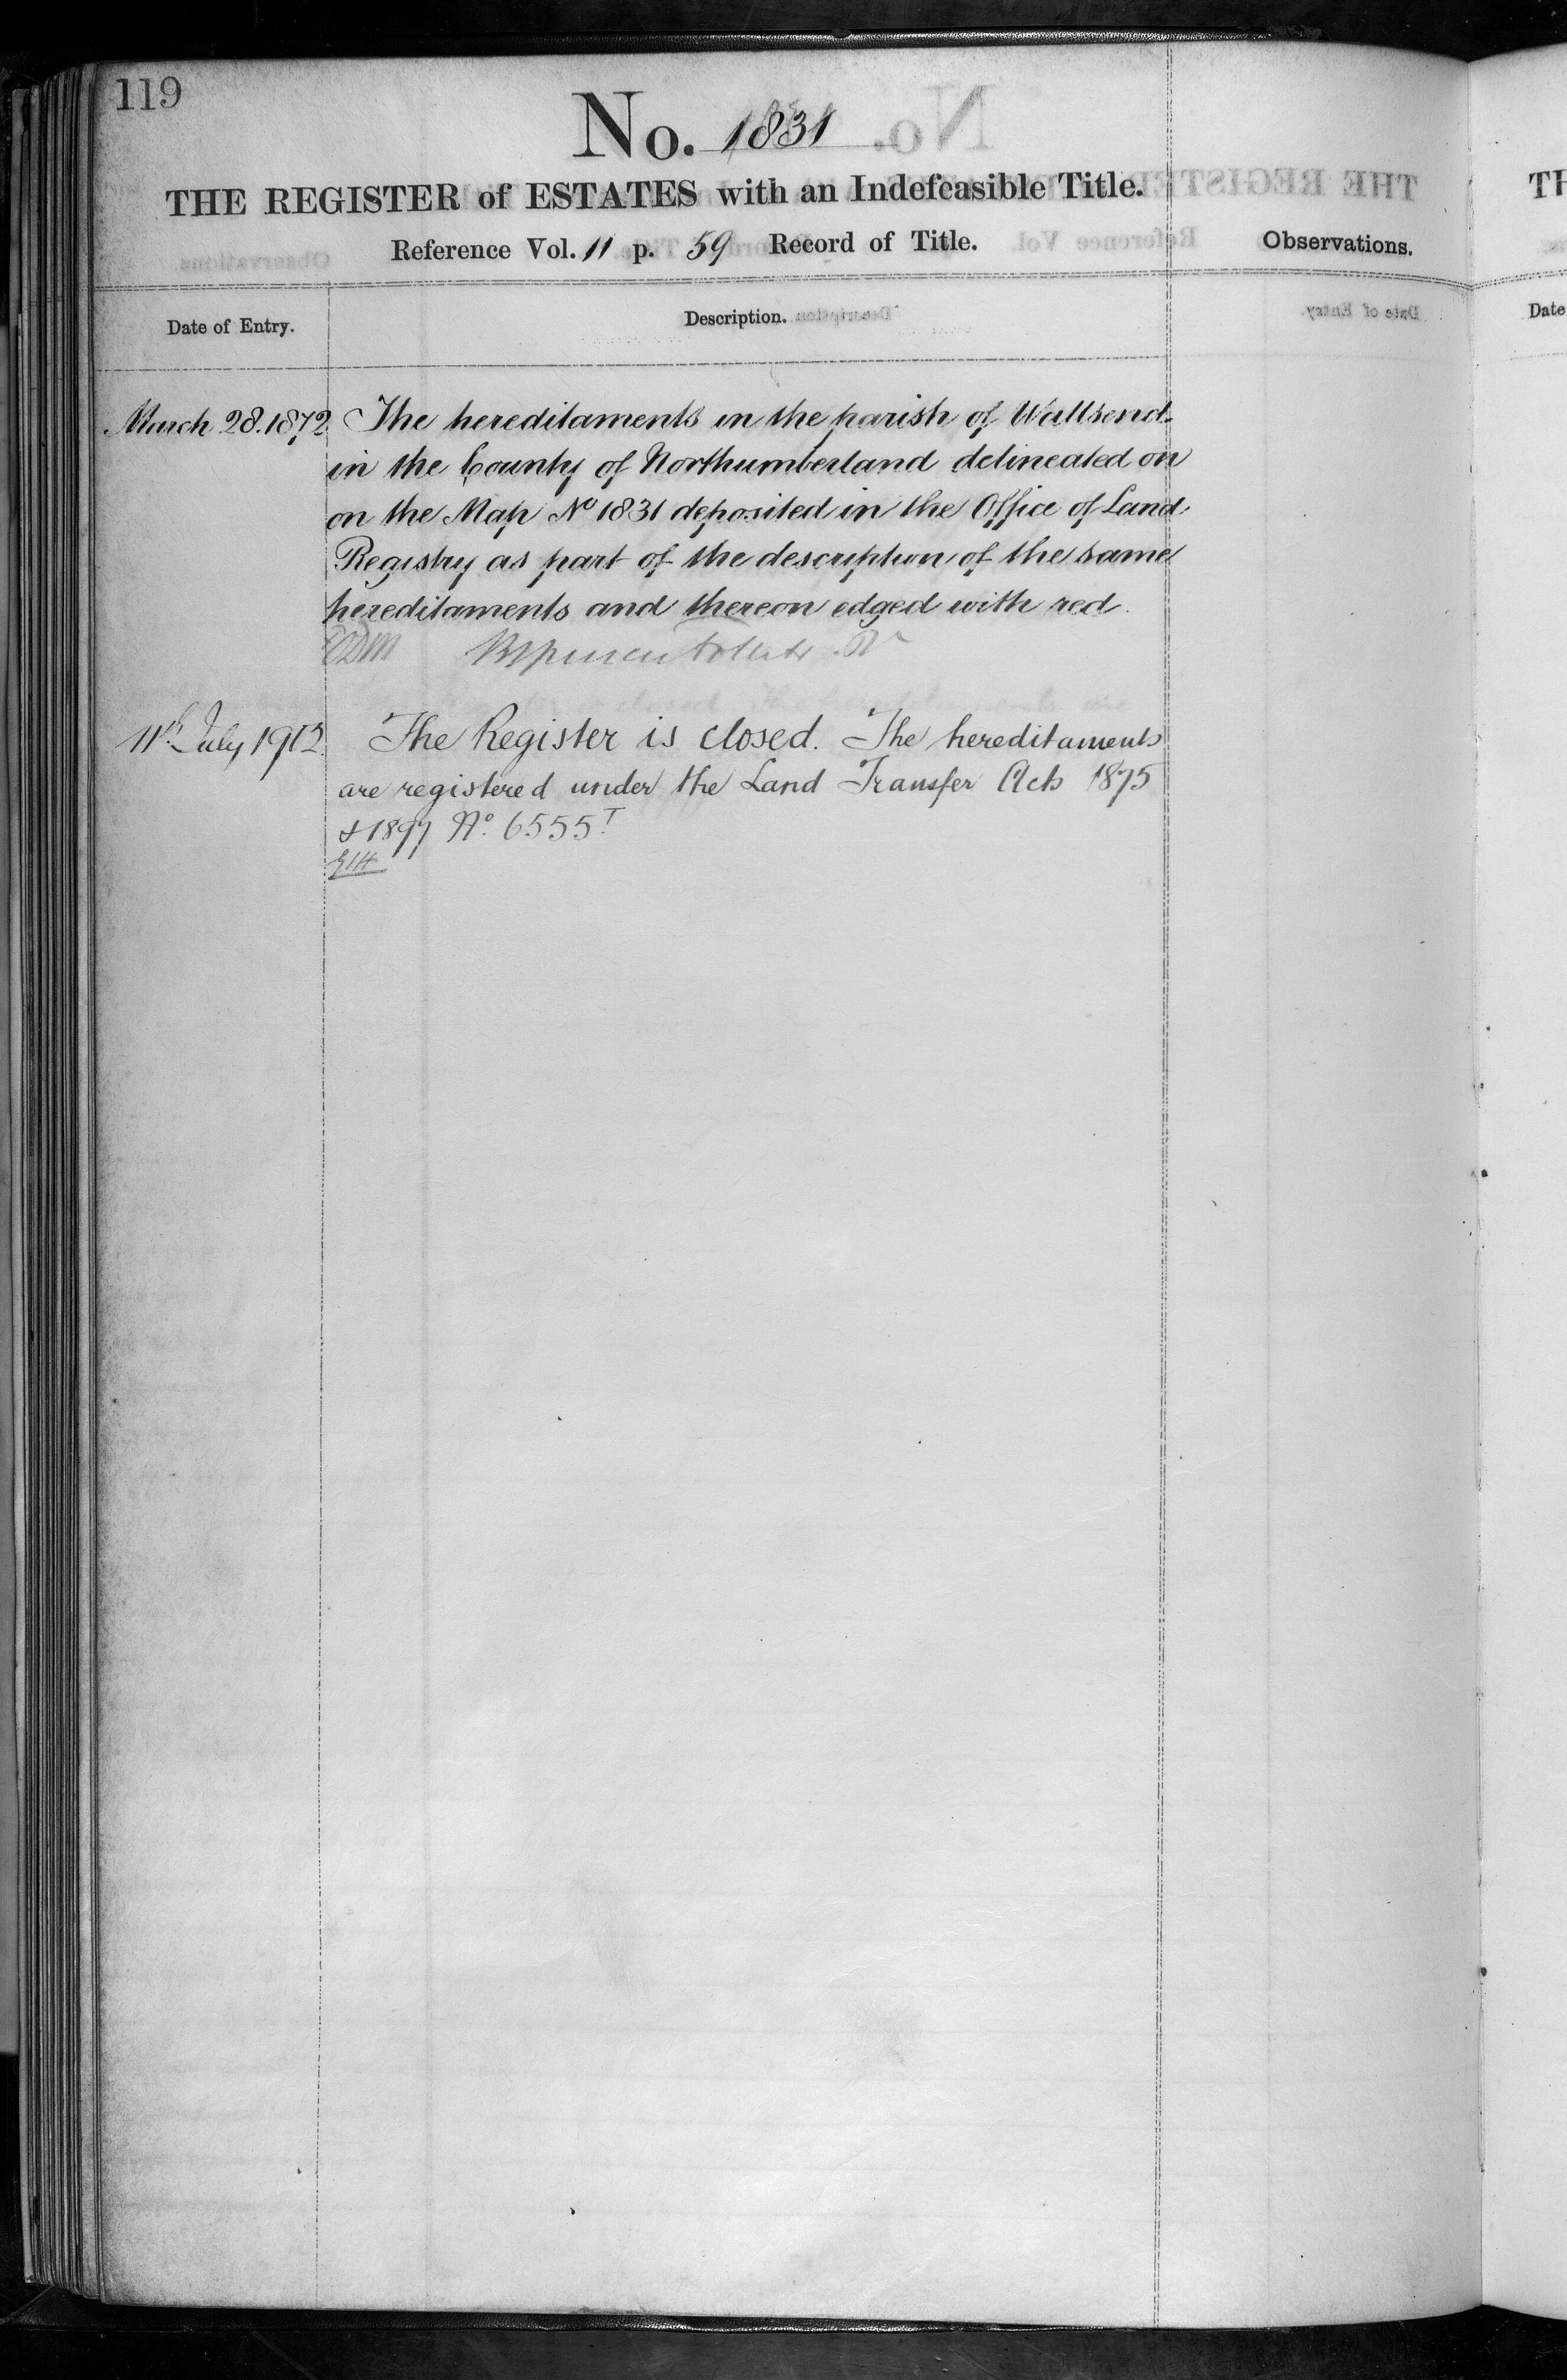 119
No. 1831
THE REGISTER of ESTATES with an Indefeasible Title.
Reference Vol. 11 p. 59 Record of Title.
Observations.
Date of Entry.
Description.
March 28. 1872 The hereditaments in the parish of Wallsend
in the County of Northumberland delineated on
on the Map No 1831 deposited in the Office of Land
Registry as part of the description of the same
hereditaments and thereon edged with red.
11th July 1912 The Register is closed. The hereditaments
are registered under the Land Transfer Acts 1875
& 1897 No. 6555T
TH
Date